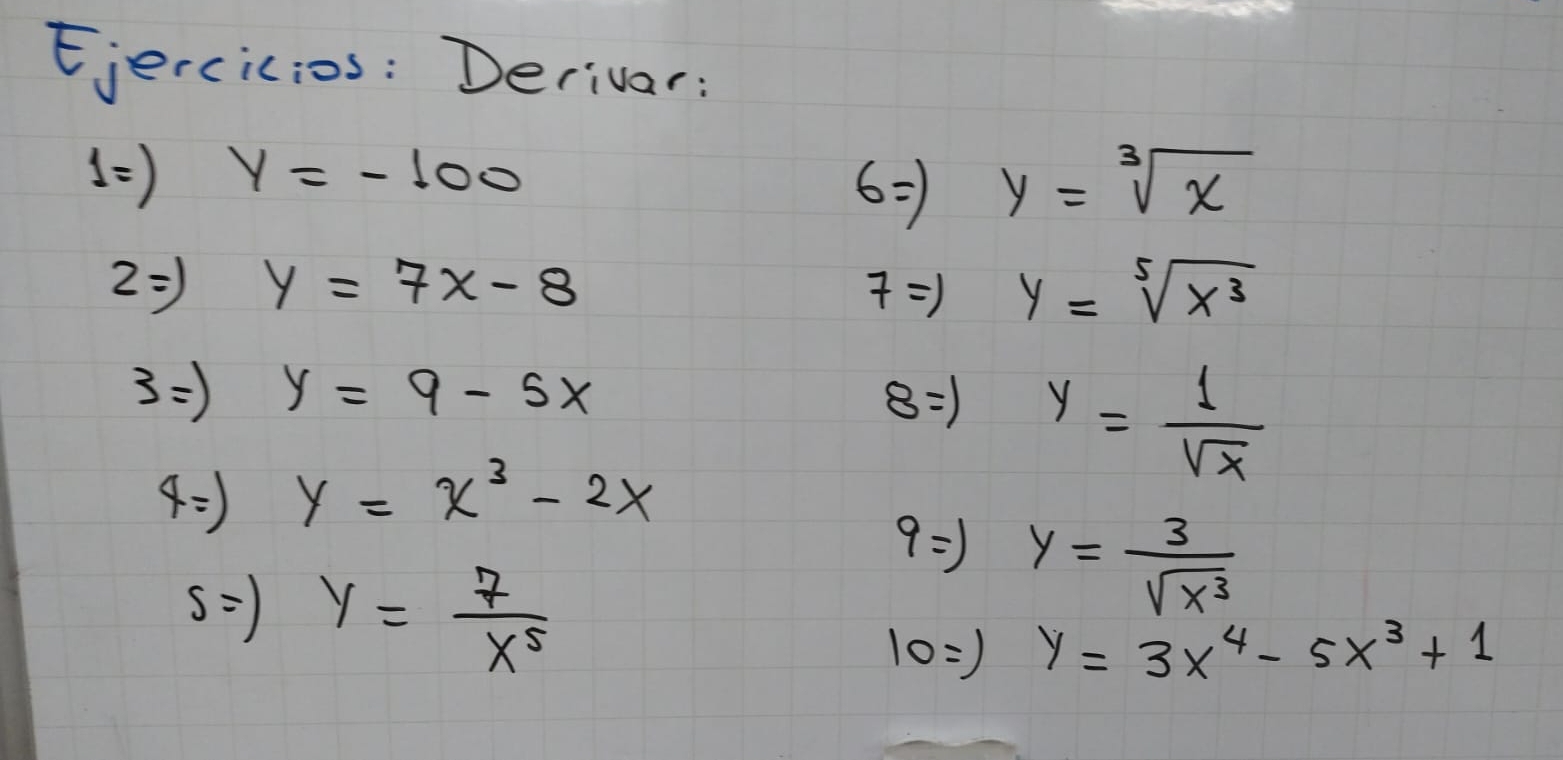 Ejercicios: Derivar:
1=) y = -100
2=) y = 7x - 8
3=) y = 9 - 5x
4=) y = x³ - 2x
5=) y = 7/x⁵
6=) y = ∛x
7=) y = ⁵√x³
8=) y = 1/√x
9=) y = 3/√x³
10=) y = 3x⁴ - 5x³ + 1